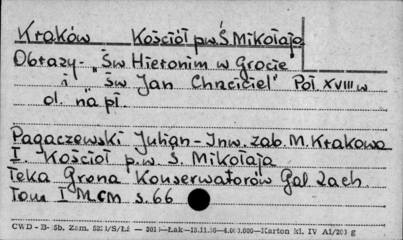 Kraków Kościół p.w. Ś Mikołaja
Obrazy - „Św Hieronim w Grocie
i "Św Jan Chrzciciel" Poł XVIII w
ol. na pł.
Pagaczewski Julian - Inw. zab. M. Krakowa
I Kościoł p.w. Ś. Mikołaja
Teka Grona Konserwatorów Gal Zach.
Tom I MCM s. 66
CWD - B- Zam. S/Łż — Łak — Karton kl. IV A1/203 g